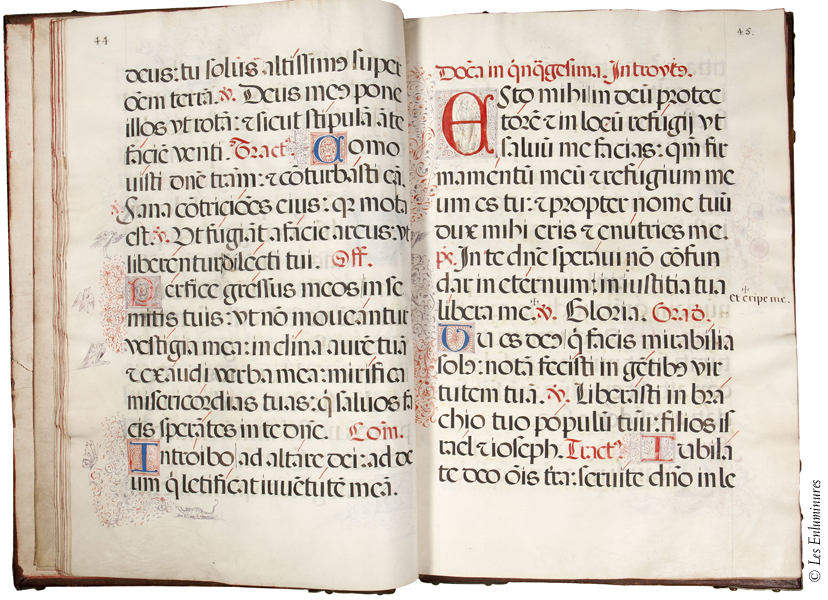 44
deus: tu solus altissim9 super
oēm terrā. v. Deus me9 pone
illos vt rotā: ⁊ sicut stipulā āte
faciē venti. Tract9. Como
uisti dn̄e trām: ⁊ cōturbasti eā.
Sana cōtriciōes eius: qr mota
est. v. Ut fugiāt a facie arcus: vt
liberentur dilecti tui. Off.
Perfice gressus meos in se
mitis tuis: vt nō moueantur
vestigia mea: inclina aurē tuā
⁊ exaudi verba mea: mirifica
misericordias tuas: q̇ saluos fa
cis sperātes in te dn̄e. Com̄.
Introibo ad altare dei: ad de
um q̇ letificat iuuētutē meā.
45.
Doc̄a in q̄nq̄gesima. Introyt9.
Esto mihi in deū protec
torē ⁊ in locū refugij vt
saluū me facias: qm̄ fir
mamentū meū ⁊ refugium me
um es tu: ⁊ propter nomē tuū
dux mihi eris ⁊ enutries me.
ps. In te dn̄e speraui nō cōfun
dar in eternum: in iustitia tua
libera me. v. Gloria. Grad.
et eripe me.
Tu es de9 q̇ facis mirabilia
sol9: notā fecisti in gētib9 vir
tutem tuā. v. Liberasti in bra
chio tuo populū tuū: filios is
rael ⁊ ioseph. Tract9. Iubila
te deo ōis tr̄a: seruite dn̄o in le
© Les Enluminures